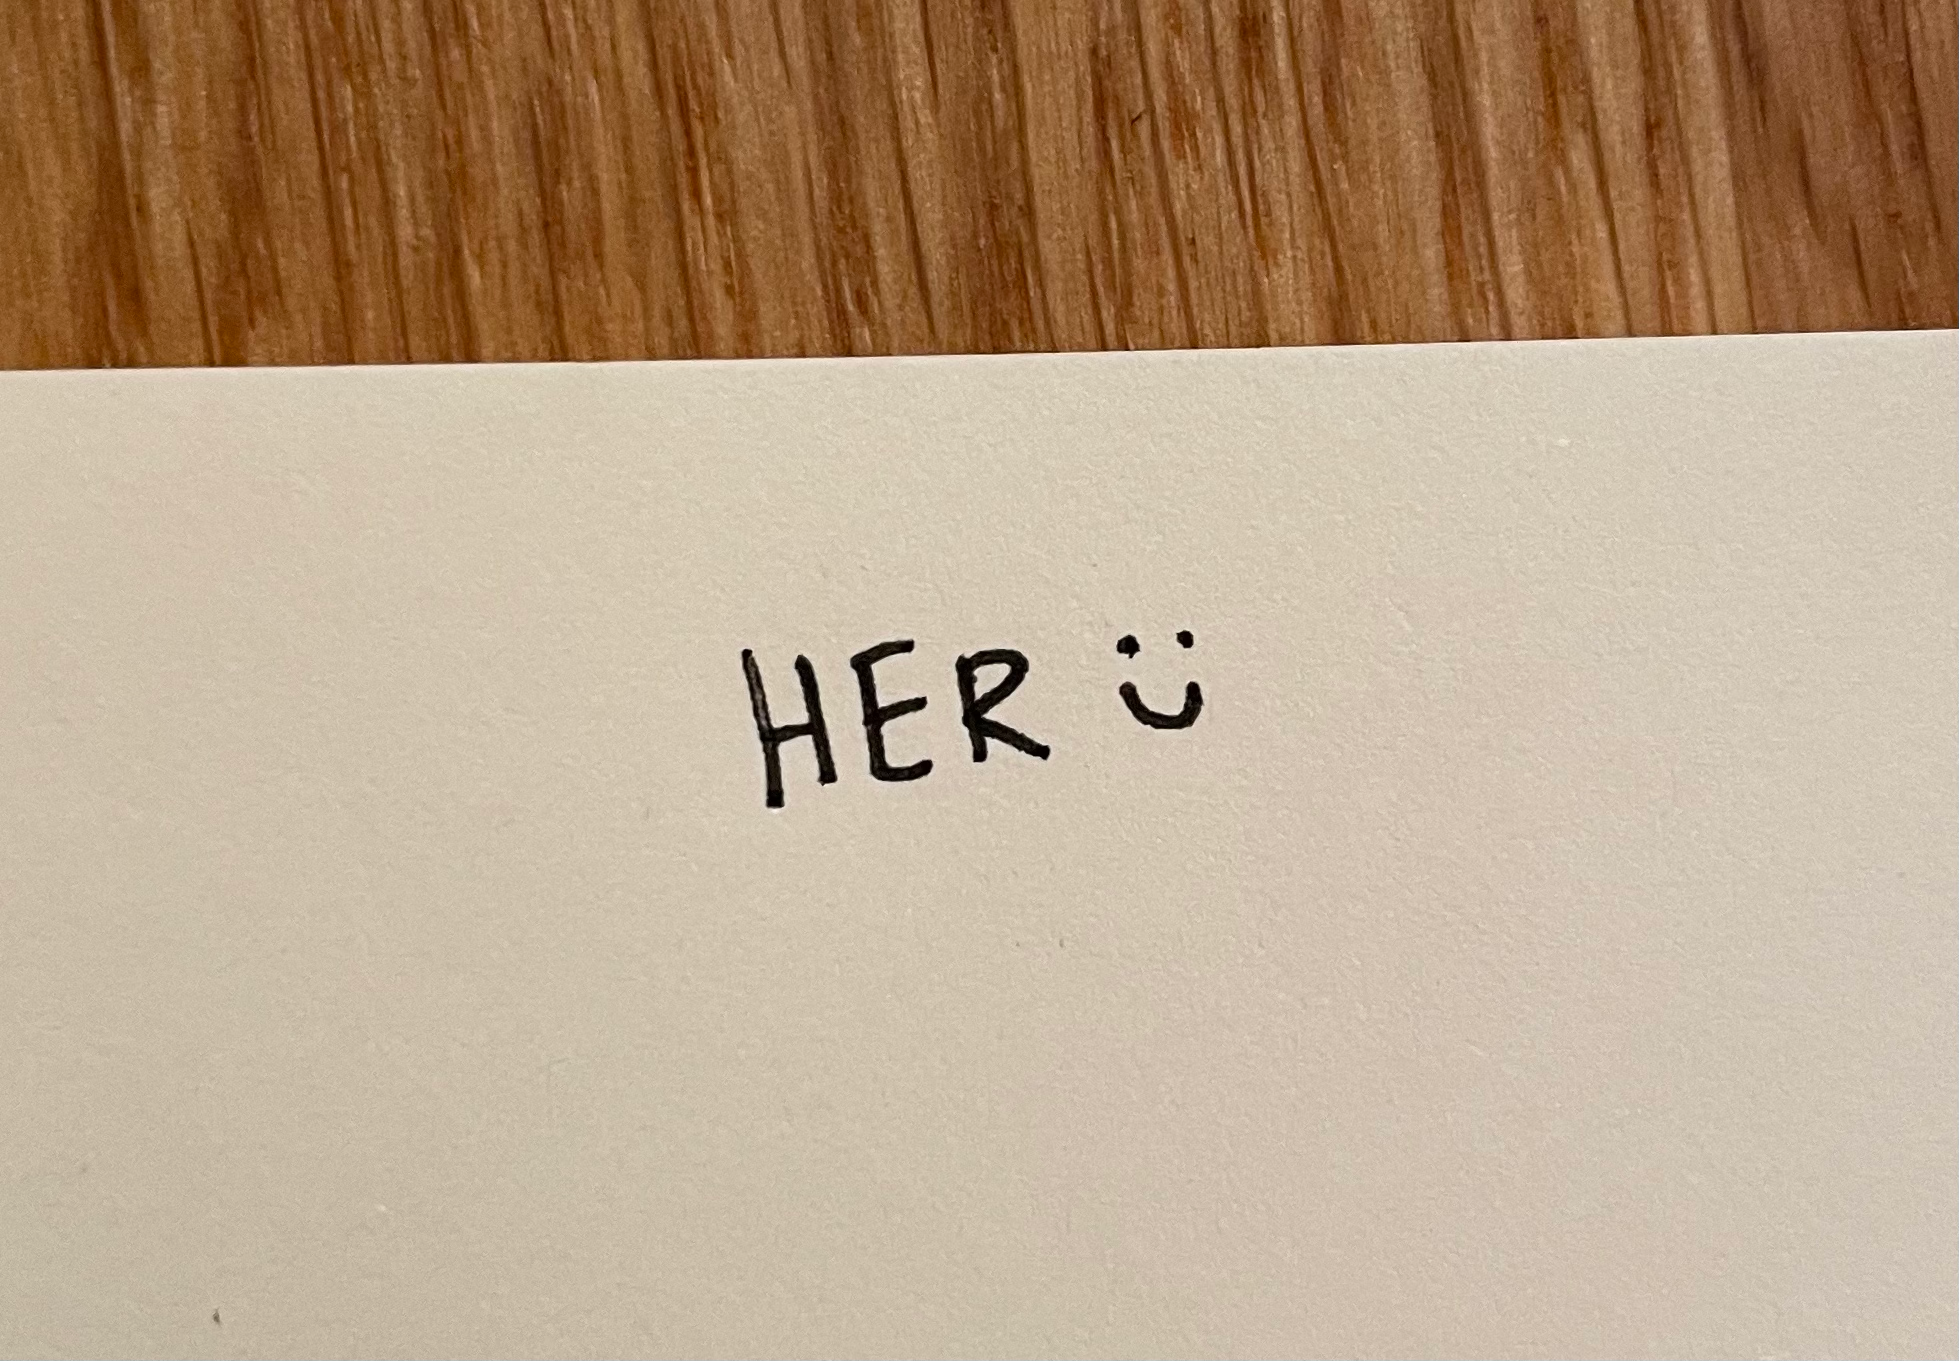 HER Ü